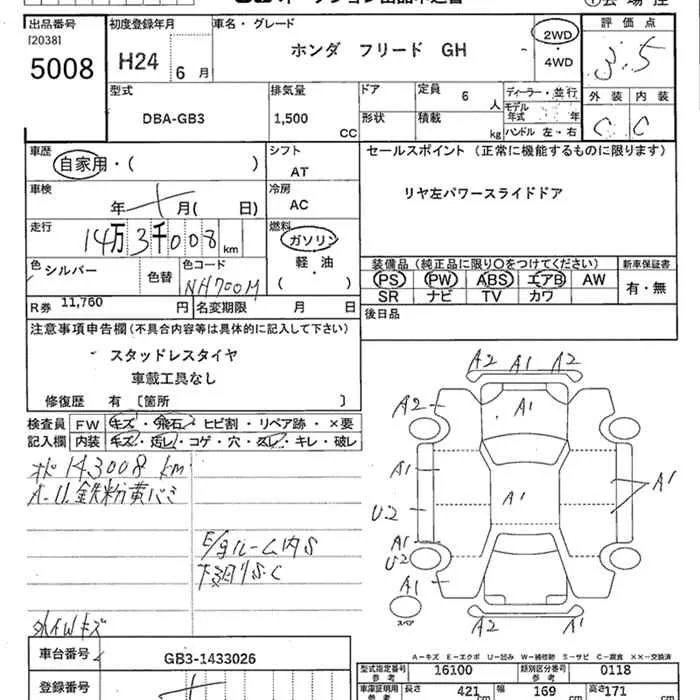 出品番号 初度登録年月 車名・グレード 評価点
[2038]
5008 H24 6月 ホンダ フリード GH 2WD・4WD 3.5
型式 排気量 ドア 定員 ディーラー・並行 外装 内装
DBA-GB3 1,500 CC 形状 6人 積載 kg モデル年式 年 ハンドル 左・右 C C
車歴 シフト セールスポイント (正常に機能するものに限ります)
自家用・( ) AT
車検 冷房 リヤ左パワースライドドア
年 月( 日) AC
走行 燃料
14万3千008km ガソリン
軽・油
( )
色 シルバー 色替 色コード NH700M
装備品 (純正品に限り○をつけてください) 新車保証書
PS PW ABS エアB AW 有・無
SR ナビ TV カワ
R券 11,760 円 名変期限 月 日
後日品
注意事項申告欄 (不具合内容等は具体的に記入して下さい)
スタッドレスタイヤ
車載工具なし
修復歴 有 [箇所 ]
検査員 FW キズ・飛石・ヒビ割・リペア跡・×要
記入欄 内装 キズ・汚し・コゲ・穴・スレ・キレ・破レ
143008 km
A-U鉄粉黄バミ
E/gルーム内S
下廻りS.C
外イWキズ
A2 A1 A2
A2 A1
A1 A1 A1
U2
A1
U2
A1
スペア
A2 A1
A-キズ E-エクボ U-凹み W-補修跡 S-サビ C-腐食 XX-交換済
車台番号 GB3-1433026
型式指定番号 参考 16100 類別区分番号 参考 0118
登録番号
車庫証明用 参考 長さ 421 cm 幅 169 cm 高さ 171 cm